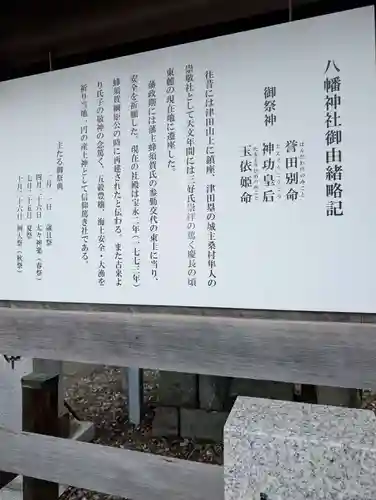 八幡神社御由緒略記
御祭神 誉田別命
神功皇后
玉依姫命
往昔には津田山上に鎮座、津田邑の城主桑村隼人の
崇敬社として天文年間には三好氏崇拝の篤く慶長の頃
東麓の現在地に遷座した。
藩政期には藩主蜂須賀氏の参勤交代の東上に当り、
安全を祈願した。現在の社殿は宝永二年(一七七三年)
蜂須賀綱矩公の時に再建されたと伝わる。また古来よ
り氏子の敬神の念篤く、五穀豊穣、海上安全・大漁を
祈り当地一円の産土神として信仰篤き社である。
主たる御祭典
一月 一日 歳旦祭
七月二十五日 夏祭
十月二十六日 例大祭(秋祭)